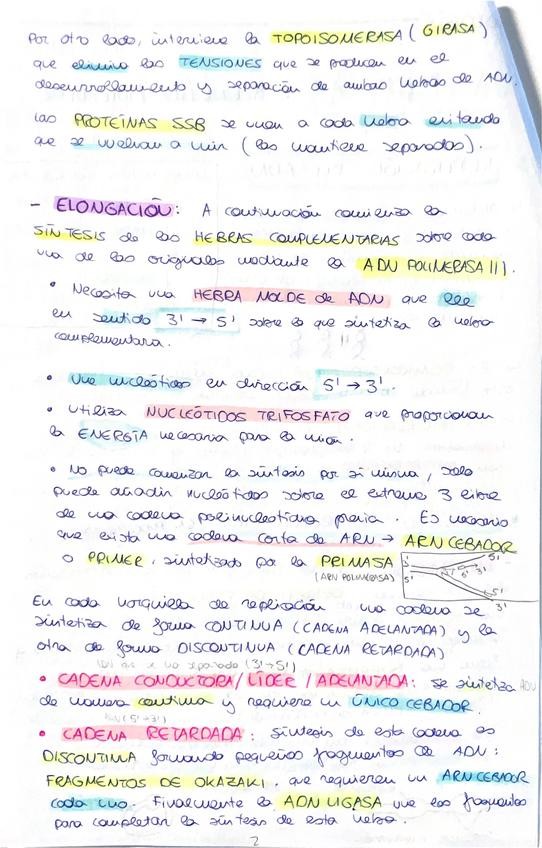 Por otro lado, interviene la TOPOISOMERASA (GIRASA)
que elimina las TENSIONES que se producen en el
desenrollamiento y separación de ambas hebras de ADN.
Las PROTEÍNAS SSB se unen a cada hebra evitando
que se vuelvan a unir (las mantiene separadas).
- ELONGACIÓN: A continuación comienza la
SÍNTESIS de las HEBRAS COMPLEMENTARIAS sobre cada
una de las originales mediante la ADN POLIMERASA III.
• Necesita una HEBRA MOLDE de ADN que lee
en sentido 3' → 5' sobre la que sintetiza la hebra
complementaria.
• Une nucleótidos en dirección 5' → 3'.
• Utiliza NUCLEÓTIDOS TRIFOSFATO que proporcionan
la ENERGÍA necesaria para la unión.
• No puede comenzar la síntesis por si misma, solo
puede añadir nucleótidos sobre el extremo 3 libre
de una cadena polinucleótidica previa. Es necesario
que exista una cadena corta de ARN → ARN CEBADOR
o PRIMER, sintetizado por la PRIMASA
(ARN POLIMERASA)
3'
5'
5'
5' 3'
5'
3'
En cada horquilla de replicación una cadena se
sintetiza de forma CONTINUA (CADENA ADELANTADA) y la
otra de forma DISCONTINUA (CADENA RETARDADA)
(3'→5')
• CADENA CONDUCTORA / LÍDER / ADELANTADA: se sintetiza ADN
de manera continua y requiere un ÚNICO CEBADOR.
(5'→3')
• CADENA RETARDADA: síntesis de esta cadena es
DISCONTINUA formando pequeños fragmentos de ADN:
FRAGMENTOS DE OKAZAKI, que requieren un ARN CEBADOR
cada uno. Finalmente la ADN LIGASA une los fragmentos
para completar la síntesis de esta hebra.
2